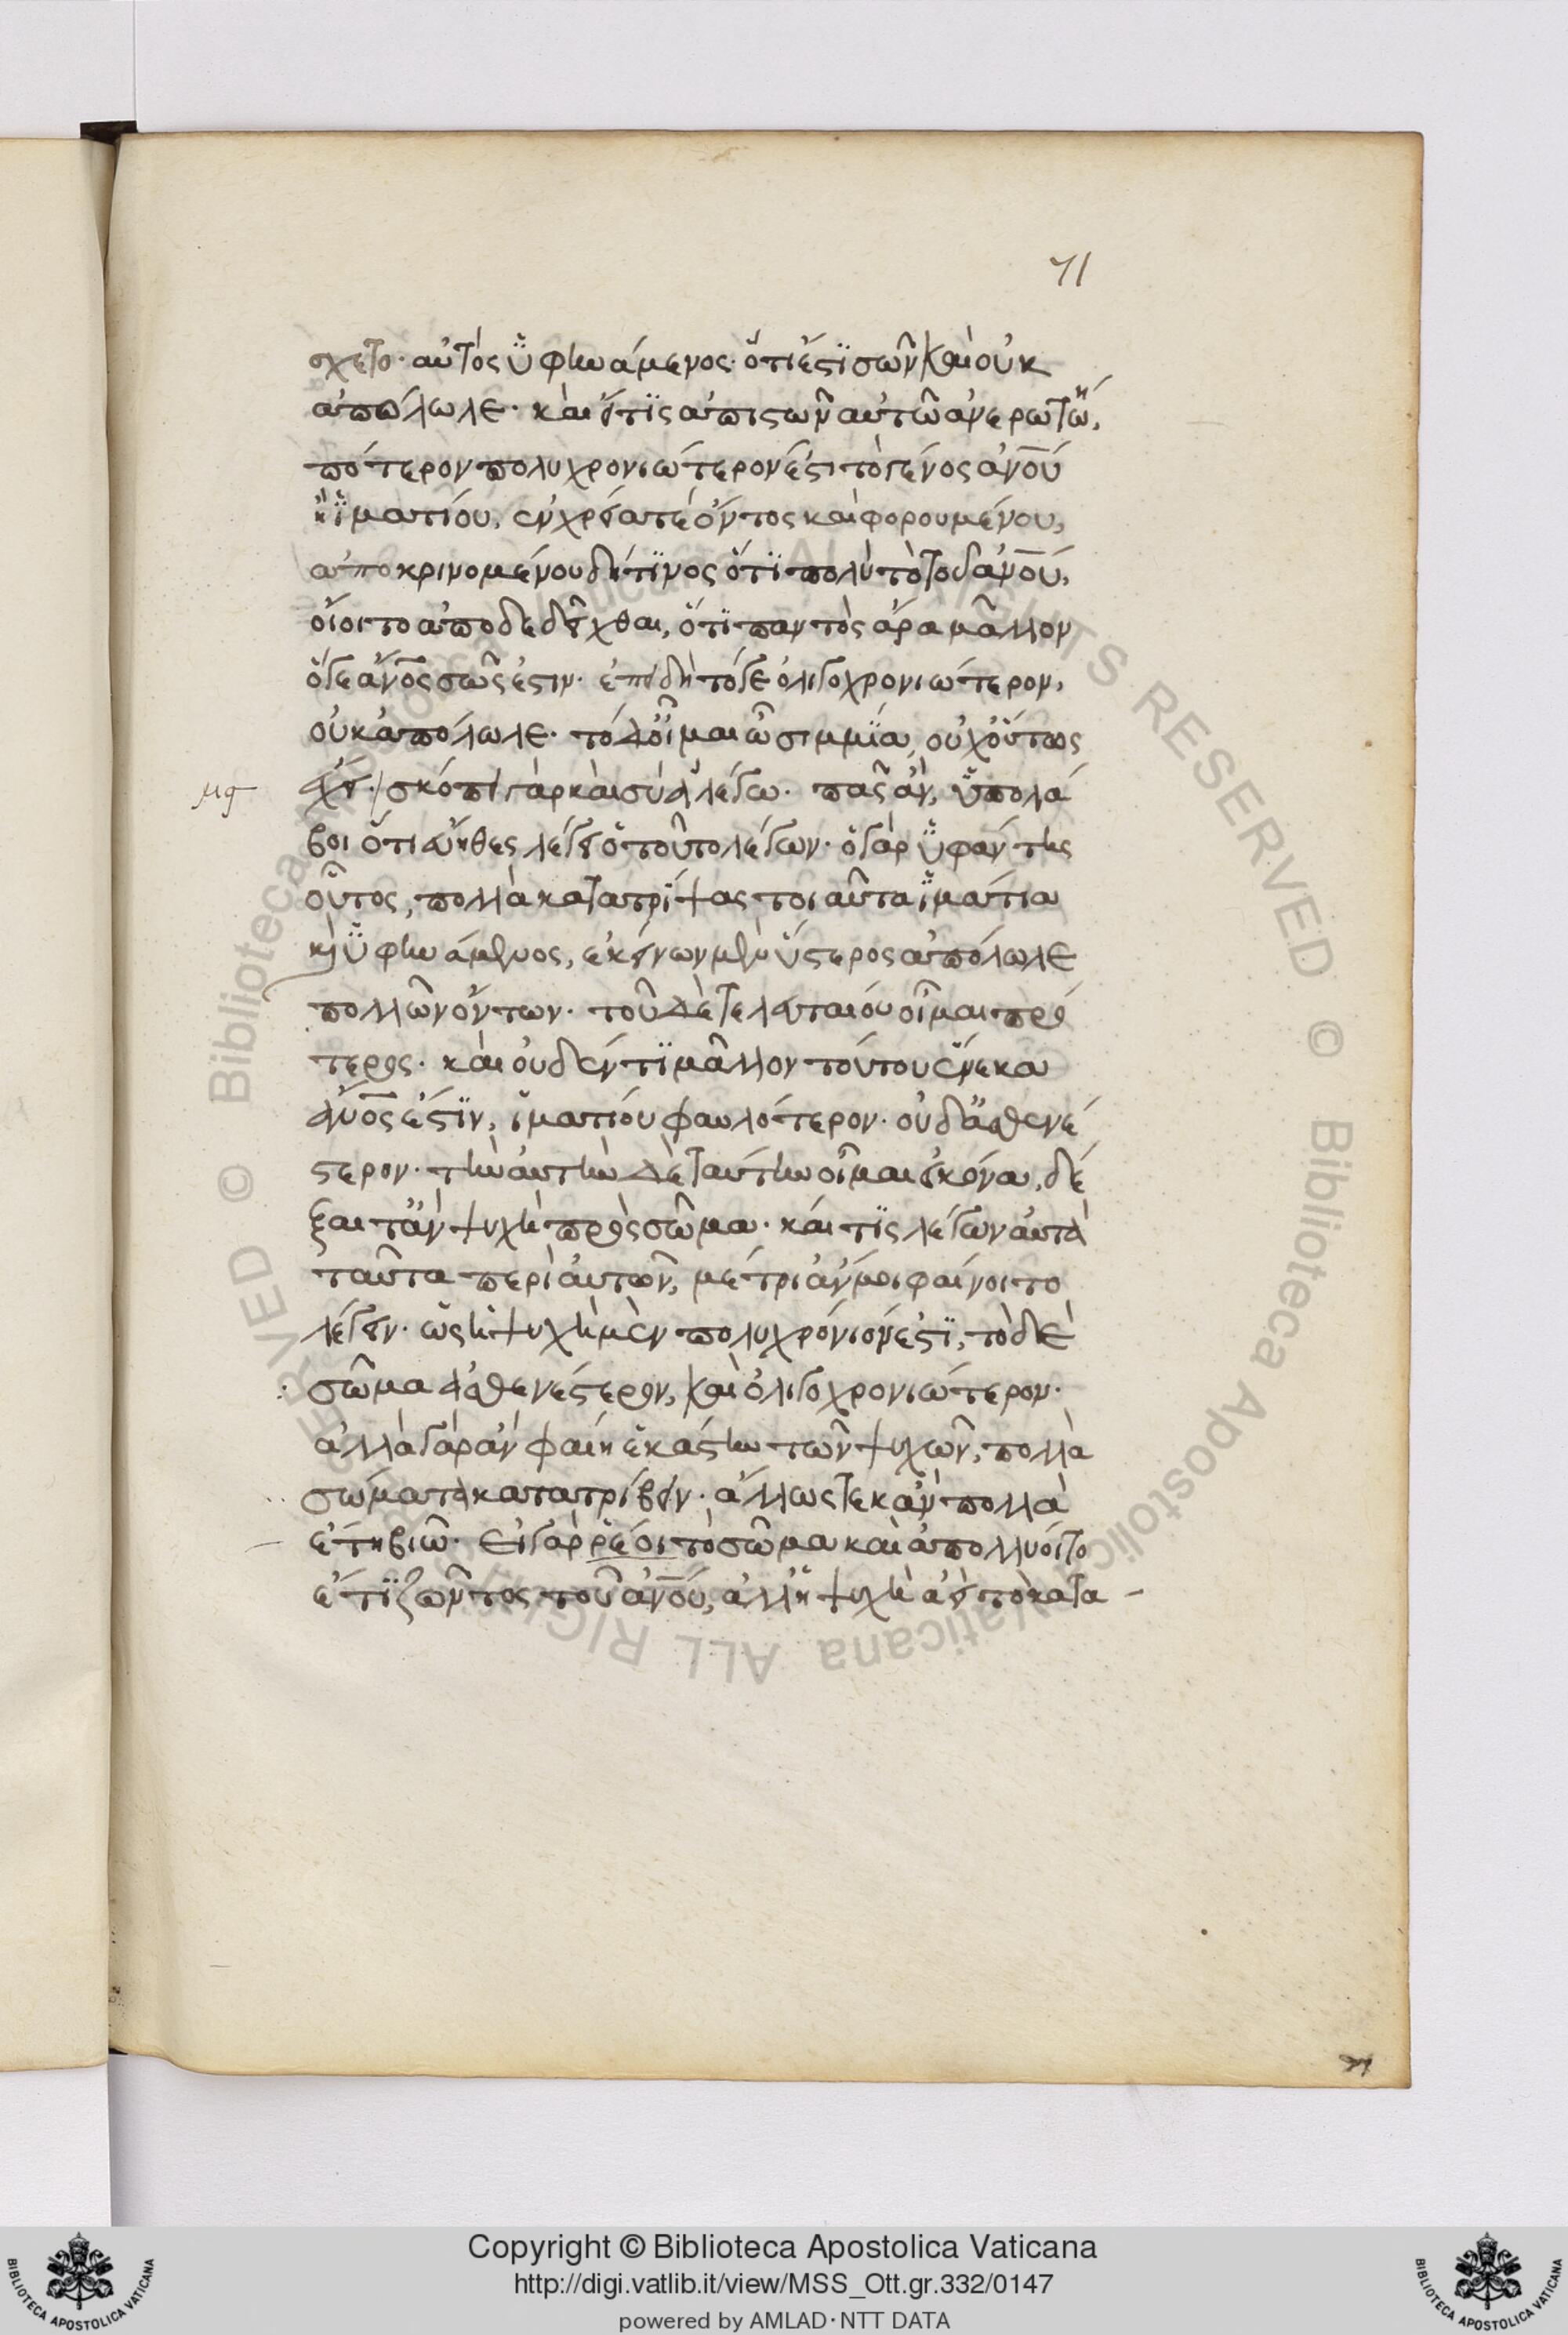 71
σχετο· αὐτὸς ὑφηνάμενος· ὅτι ἐστὶ σῶν καὶ οὐκ
ἀπόλωλε· καὶ εἴ τις ἀπιστῶν αὐτῶ ἀνερωτώη,
πότερον πολυχρονιώτερον ἐστι τὸ γένος ἀνου
ἢ ἱματίου, ἐν χρείᾳ τε ὄντος καὶ φορουμένου,
ἀποκρινομένου δή τινος ὅτι πολὺ τὸ τοῦ ἀνου,
οἴοιτο ἀποδεδεῖχθαι, ὅτι παντὸς ἄρα μᾶλλον
ὅγε ἄνος σῶς ἐστιν· ἐπειδὴ τόγε ὀλιγοχρονιώτερον,
οὐκ ἀπόλωλε· τὸ δ' οἶμαι ὦ σιμμία, οὐχ οὕτως
μγ ἔχει· σκόπει γὰρ καὶ σὺ ἃ λέγω· πᾶς ἂν, ὑπολά
βοι ὅτι εὔηθες λέγει ὁ τοῦτο λέγων· ὁ γὰρ ὑφάντης
οὗτος, πολλὰ κατατρίψας τοιαῦτα ἱμάτια
καὶ ὑφηνάμενος, ἐκείνων μὲν ὕστερος ἀπόλωλε
πολλῶν ὄντων· τοῦ δὲ τελευταίου οἶμαι πρό
τερος· καὶ οὐδέν τι μᾶλλον τούτου ἕνεκα
ἄνος ἐστὶν, ἱματίου φαυλότερον· οὐδ' ἀσθενέ
στερον· τὴν αὐτὴν δὲ ταύτην οἶμαι εἰκόνα, δέ
ξαιτ' ἂν ψυχὴ πρὸς σῶμα· καί τις λέγων αὐτὰ
ταῦτα περὶ αὐτῶν, μέτρι' ἄν μοι φαίνοιτο
λέγειν· ὡς ἡ ψυχὴ μὲν πολυχρόνιόν ἐστι, τὸ δὲ
σῶμα ἀσθενέστερον, καὶ ὀλιγοχρονιώτερον·
ἀλλὰ γὰρ ἂν φαίη ἑκάστην τῶν ψυχῶν, πολλὰ
σώματα κατατρίβειν· ἄλλως τε κἂν πολλὰ
ἔτη βιῶ· εἰ γὰρ ῥέοι τὸ σῶμα καὶ ἀπολλύοιτο
ἔτι ζῶντος τοῦ ἀνου, ἀλλ' ἡ ψυχὴ ἀεὶ τὸ κατα
Copyright © Biblioteca Apostolica Vaticana
http://digi.vatlib.it/view/MSS_Ott.gr.332/0147
powered by AMLAD·NTT DATA